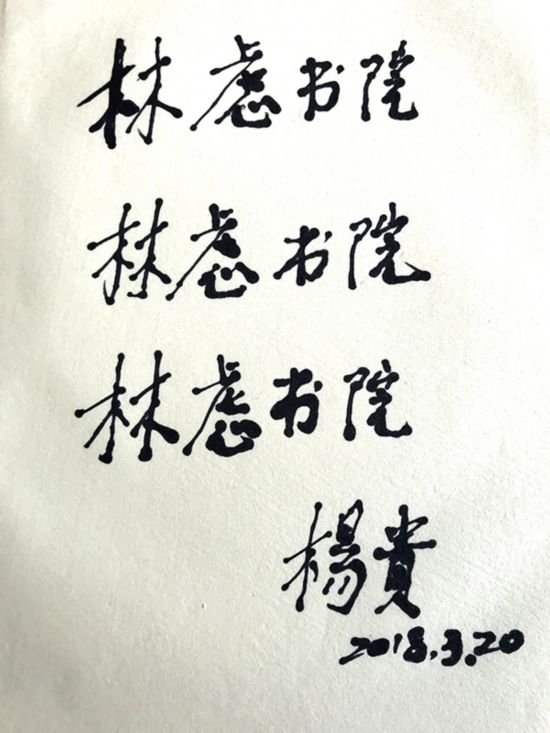 林虑书院
林虑书院
林虑书院
楊貴
2018.3.20